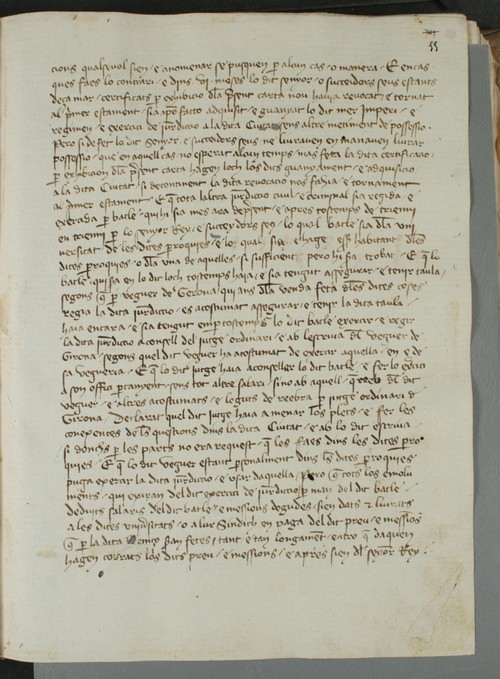 55
cions qualsevol sien · e anomenar se pusquen per alcun cas · o manera · E en cas
ques faes lo contrari · e dins vj · meses lo dit senyor · o succeidors seus estants
deça mar · certificats per exhibicio dla present carta nou havia revocat · e tornat
al primer estament · sia ipso facto adquisit · e guanyat lo dit mer Imperi · e
regimen · e exercici de jurdiccio a la dita Ciutat sens altre metiment de possessio ·
Pero si de fet lo dit Senyor · e succeidors seus ne liuraven en manaven liurar
possessio · que en aquell cas no esperat alcun temps · mas feta la dita certificacio
per exhibicion dla present carta hagen loch los dits guanyament · e adquisicio
a la dita Ciutat · si decontinent la dita revocacio nos fahia · e tornament
al primer estament · E que tota la altra jurdiccio civil · e criminal sia regida · e
exercida per batle · qui hi sia mes ara de present · e apres tostemps de trienni
en trienni per lo senyor Rey · e succeydors seus · lo qual batle sia dla uni
versitat de les dites parroquies · e lo qual sia · e hage esser habitant dles
dites parroquies · o dla una de aquelles · si sufficient pero hi fa trobar · E que lo
batle · qui sia en lo dit loch tostemps haia · e sia tengut assegurar · e tenir taula ·
segons que per veguer de Gerona qui ans dla venda feta dles dites coses
regia la dita jurdiccio · es acostumat assegurar · e tenir la dita taula ·
haia encara · e sia tengut emperostemps lo dit batle exercir · e regir
la dita jurdiccio a consell del jutge ordinari · e ab lescriva dl veguer de
Girona · segons quel dit veguer ha acostumat de exercir aquella · en e de
sa vegueria · E que lo dit jutge haia aconseller lo dit batle · e fer lo exercici
a son offici pertanyent · sens tot altre salari · sino ab aquell · que reeb dl dit
veguer · e altres acostumats · e leguts de reebre per jutge ordinari d
Girona · Declarat quel dit jutge haia a menar los plets · e fer les
conexences de les questions dins la dita Ciutat · e ab lo dit escriva ·
si donchs per les parts no era request · que les faes dins les dites parro
quies · E que lo dit veguer estant personalment dins les dites parroquies
puga exercir la dita jurdiccio · e usar daquella · Pero que tots los emolu
ments · qui exiran del dit exercici de jurdiccio per man del dit batle
deduits salaris del dit batle · e messions degudes · sien dats et liurats
a les dites universitats · o a lur Sindich en paga del dit preu · e messions
que per la dita compra sian fetes · tant · e tan longament · entro que daquen
hagen cobrats los dits preu · e messions · e apres sien dl senyor Rey ·